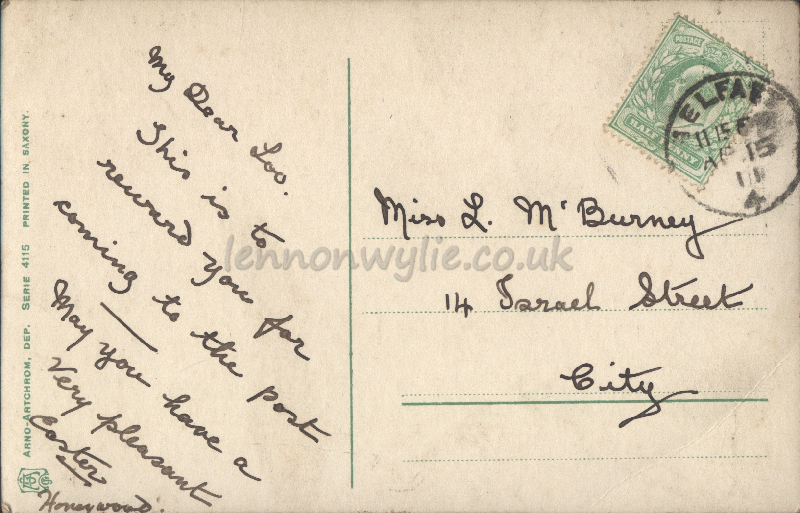 My Dear Loo.
This is to
reward you for
coming to the post
May you have a
very pleasant
Easter
Honeywood.
Miss L. McBurney
14 Israel Street
City
ARNO-ARTCHROM, DEP. SERIE 4115 PRINTED IN SAXONY.
POSTAGE
HALF PENNY
BELFAST
11.15
AP 15
11
4
lennonwylie.co.uk